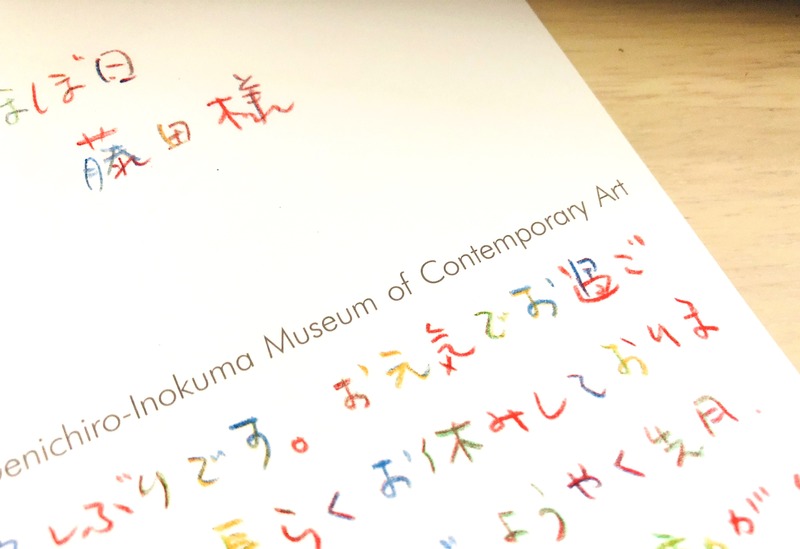 ほぼ日
藤田様
Genichiro-Inokuma Museum of Contemporary Art
しぶりです。お元気でお過ご
長らくお休みしておりま
ようやく先月
が